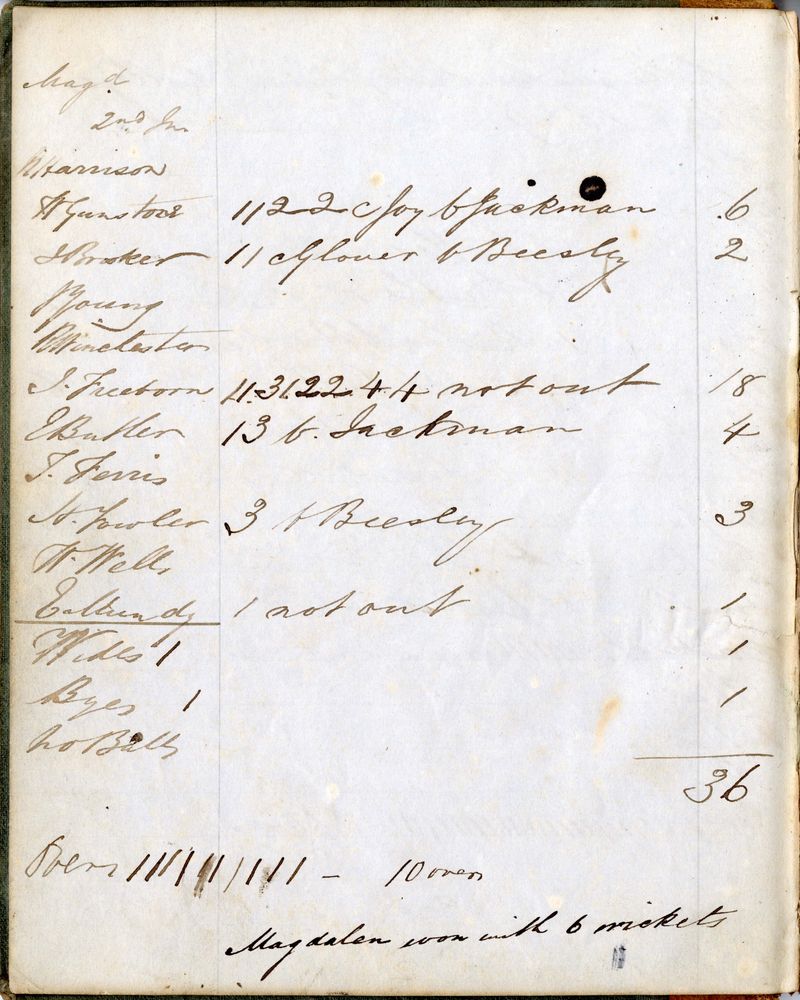 Magd
2nd In.
R Harrison
W Gunstone 1122 c Joy b Jackman 6
J Brooker 11 c Glover b Beesley 2
J Young
R Winchester
J. Freeborn 11.31.22.4.4 not out 18
E Butler 13 b. Jackman 4
T. Ferris
H. Fowler 3 b Beesley 3
W. Wells
1 not out 1
Wides 1 1
Byes 1 1
No Balls
36
Overs ////////// – 10 overs
Magdalen won with 6 wickets